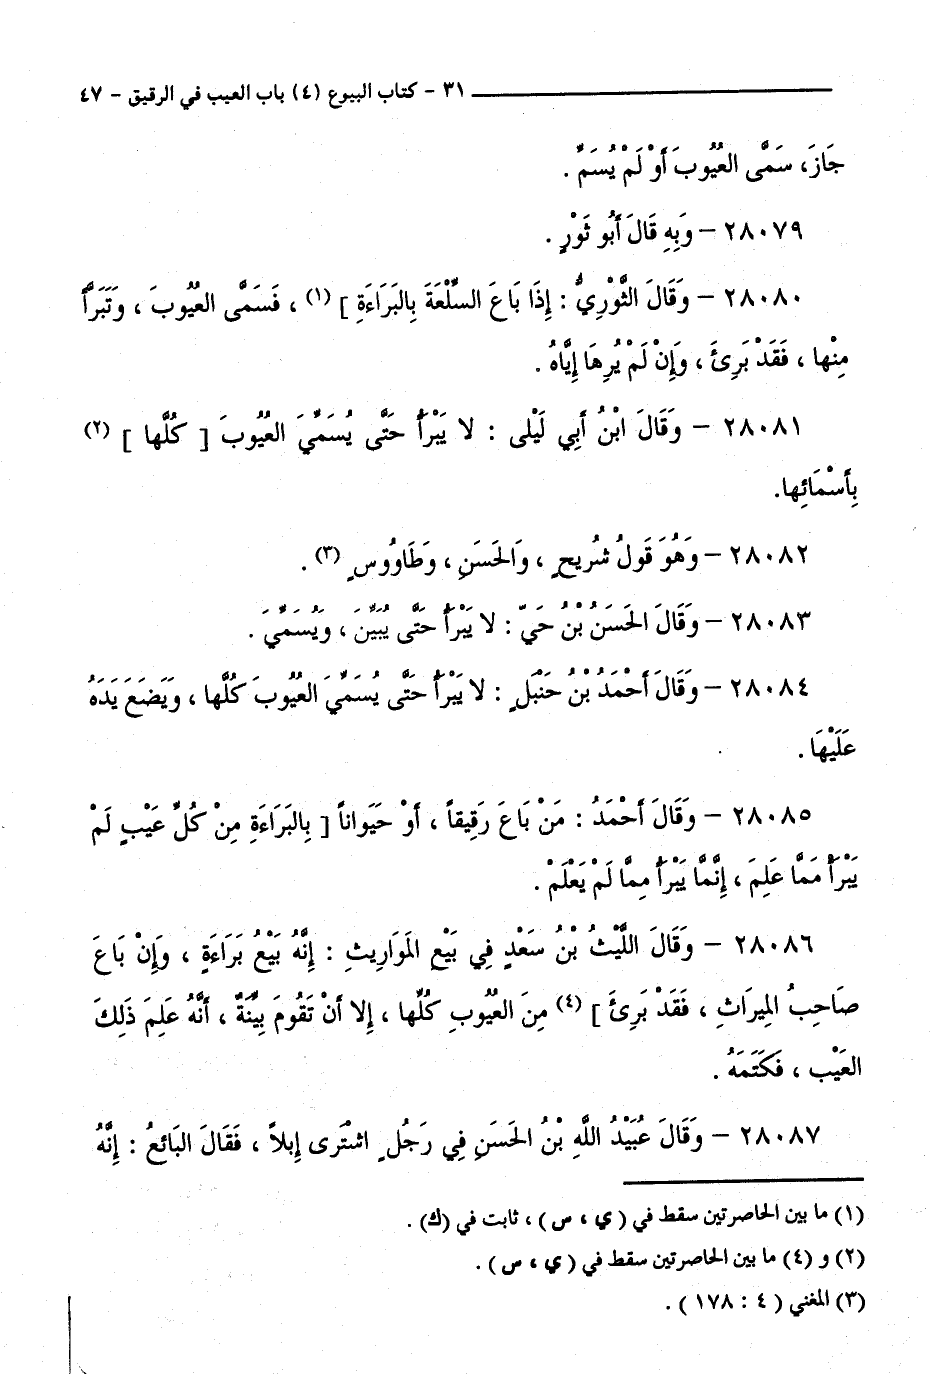 ٣١ - كتاب البيوع (٤) باب العيب في الرقيق - ٤٧
جَازَ، سَمَّى العُيُوبَ أَوْ لَمْ يُسَمِّ .
٢٨٠٧٩ - وَبِهِ قَالَ أَبُو ثَوْرٍ .
٢٨٠٨٠ - وَقَالَ الثَّوْرِيُّ : إِذَا بَاعَ السِّلْعَةَ بِالبَرَاءَةِ ] (١) ، فَسَمَّى العُيُوبَ ، وَتَبَرَّأَ
مِنْها ، فَقَدْ بَرِئَ ، وَإِنْ لَمْ يُرِهَا إِيَّاهُ .
٢٨٠٨١ - وَقَالَ ابْنُ أَبِي لَيْلى : لا يَبْرَأُ حَتَّى يُسَمِّيَ العُيُوبَ [ كُلَّها ] (٢)
بِأَسْمَائِها.
٢٨٠٨٢ - وَهُوَ قَولُ شُرِيحٍ ، وَالحَسَنِ ، وَطَاوُوسٍ (٣) .
٢٨٠٨٣ - وَقَالَ الحَسَنُ بْنُ حَيٍّ : لا يَبْرَأُ حَتَّى يُبَيِّنَ ، وَيُسَمِّيَ .
٢٨٠٨٤ - وَقَالَ أَحْمَدُ بْنُ حَنْبَلٍ : لا يَبْرَأُ حَتَّى يُسَمِّيَ العُيُوبَ كُلَّها ، وَيَضَعَ يَدَهُ
عَلَيْهَا .
٢٨٠٨٥ - وَقَالَ أَحْمَدُ : مَنْ بَاعَ رَقِيقاً ، أَوْ حَيَواناً [ بِالبَرَاءَةِ مِنْ كُلِّ عَيْبٍ لَمْ
يَبْرَأْ مَمَّا عَلِمَ ، إِنَّمَّا يَبْرَأُ مِمَّا لَمْ يَعْلَمْ .
٢٨٠٨٦ - وَقَالَ اللَّيْثُ بْنُ سَعَدْدٍ فِي بَيْعِ المَوَارِيثِ : إِنَّهُ بَيْعُ بَرَاءَةٍ ، وَإِنْ بَاعَ
صَاحِبُ المِيرَاثِ ، فَقَدْ بَرِئَ ] (٤) مِنَ العُيُوبِ كُلِّها ، إِلا أَنْ تَقُومَ بِيِّنَةٌ ، أَنَّهُ عَلِمَ ذَلِكَ
العَيْب ، فَكَتَمَهُ .
٢٨٠٨٧ - وَقَالَ عُبَيْدُ اللَّهِ بْنُ الحَسَنِ فِي رَجُلٍ اشْتَرى إِبلاً ، فَقَالَ البَائعُ : إِنَّهُ
(١) ما بين الحاصرتين سقط في ( ي ، س ) ، ثابت في (ك) .
(٢) و (٤) ما بين الحاصرتين سقط في ( ي ، س ) .
(٣) المغني ( ٤ : ١٧٨ ) .